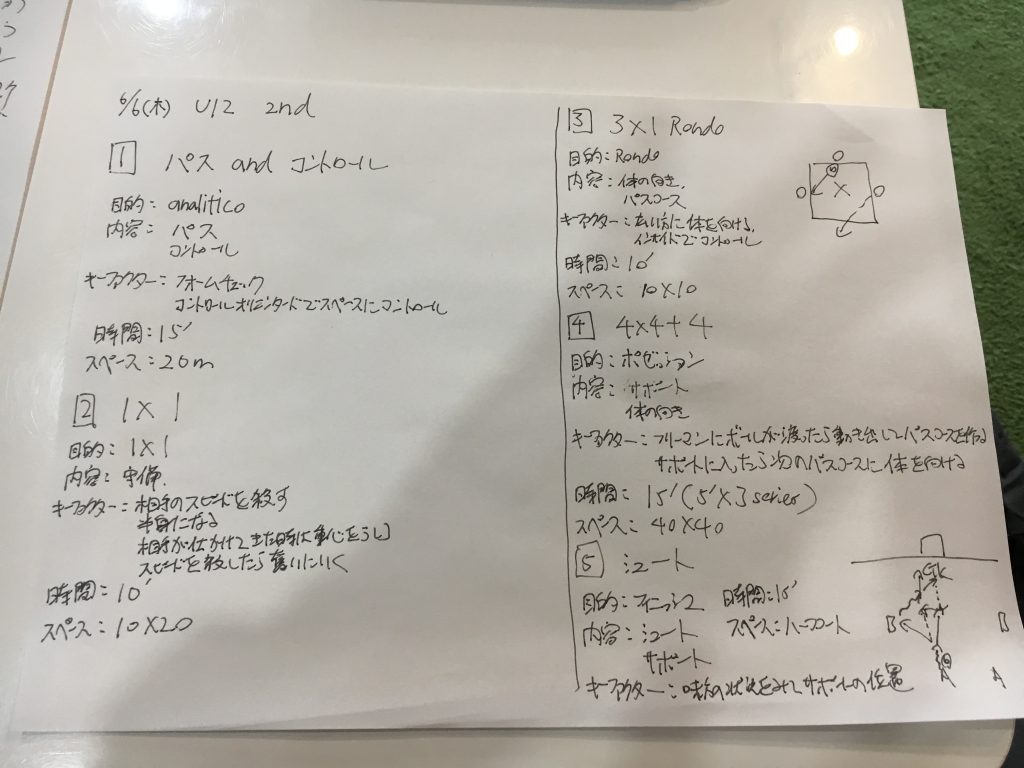 6/6(木) U12 2nd
1 パス and コントロール
目的: analitico
内容: パス
コントロール
キーファクター: フォームチェック
コントロールオリエンタードでスペースにコントロール
時間: 15′
スペース: 20m
2 1×1
目的: 1×1
内容: 守備.
キーファクター: 相手のスピードを殺す
半身になる
相手が仕かけてきた時に重心をうし
スピードを殺したら奪いにいく
時間: 10′
スペース: 10×20
3 3×1 Rondo
目的: Rondo
内容: 体の向き.
パスコース
キーファクター: 広い方に体を向ける.
インサイドでコントロール
時間: 10′
スペース: 10×10
4 4×4+4
目的: ポゼッション
内容: サポート
体の向き
キーファクター: フリーマンにボールが渡ったら動き出してパスコースを作る
サポートに入たら次のパスコースに体を向ける
時間: 15′(5′×3 series)
スペース: 40×40
5 シュート
目的: フィニッシュ 時間: 15′
内容: シュート スペース: ハーフコート
サポート
キーファクター: 味方の状況をみてサポートの位置
GK
B B
A A